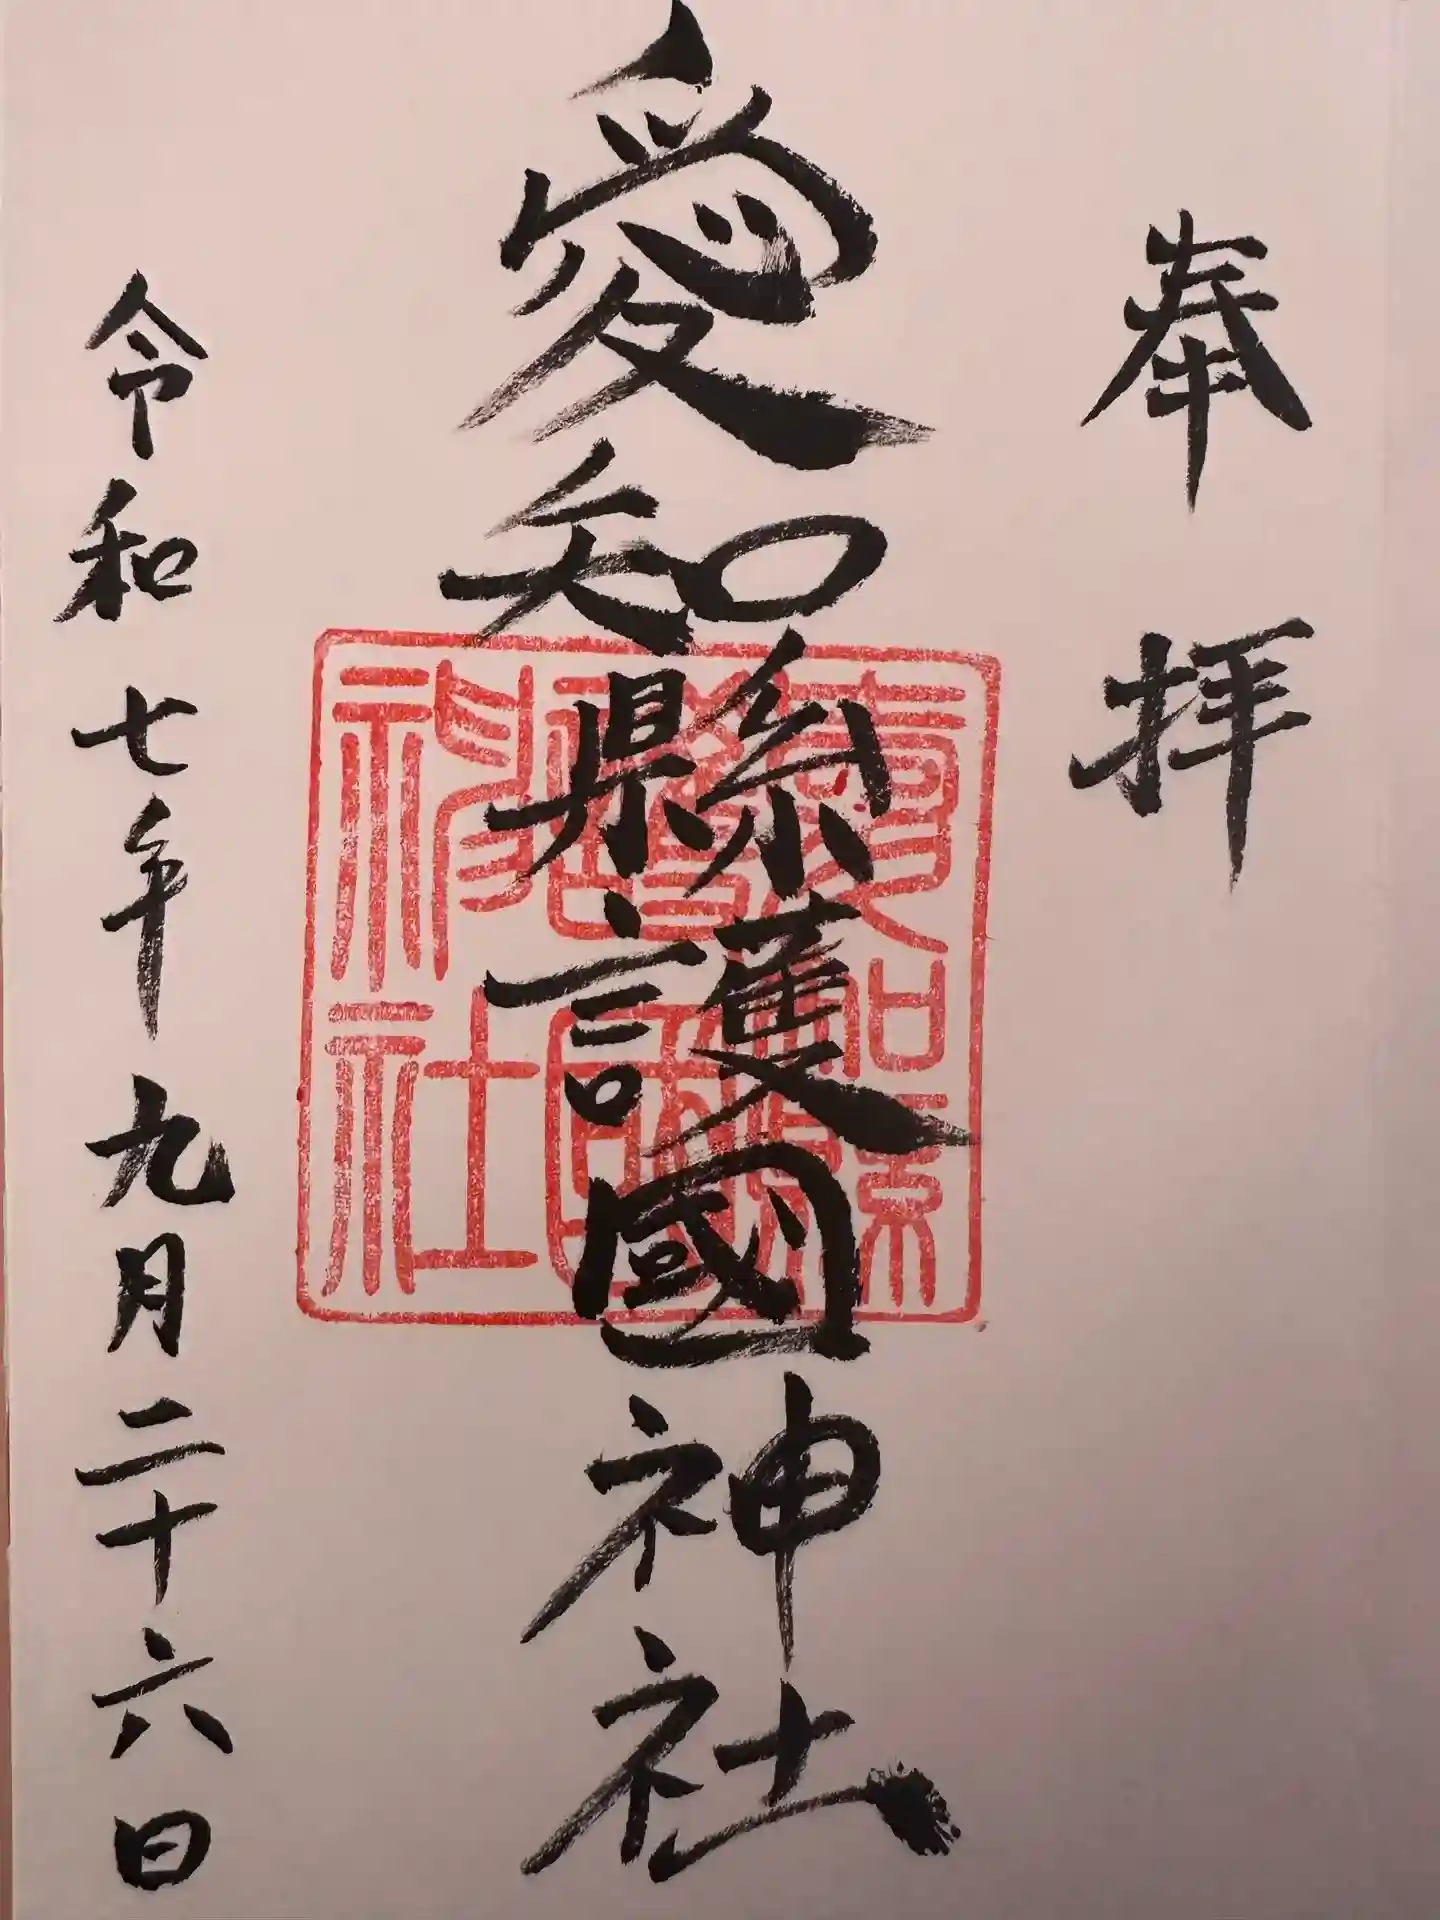 奉拝
愛知縣護國神社
愛知縣
護國
神社
令和七年九月二十六日